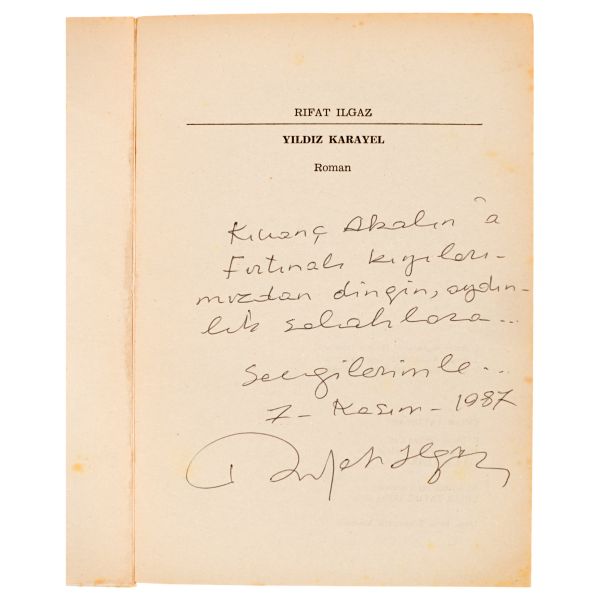 RIFAT ILGAZ
YILDIZ KARAYEL
Roman
Kıvanç Akalın'a
Fırtınalı kıyıları-
mızdan dingin, aydın-
lık sabahlara...
Sevgilerimle...
7 - Kasım - 1987
Rıfat Ilgaz